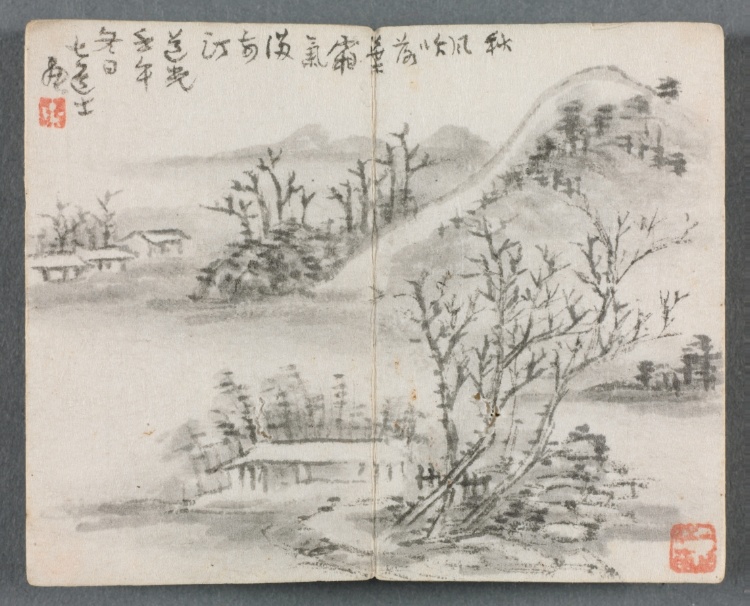 秋
風
吹
落
葉
霜
氣
滿
前
汀
道光
冬日
七道士